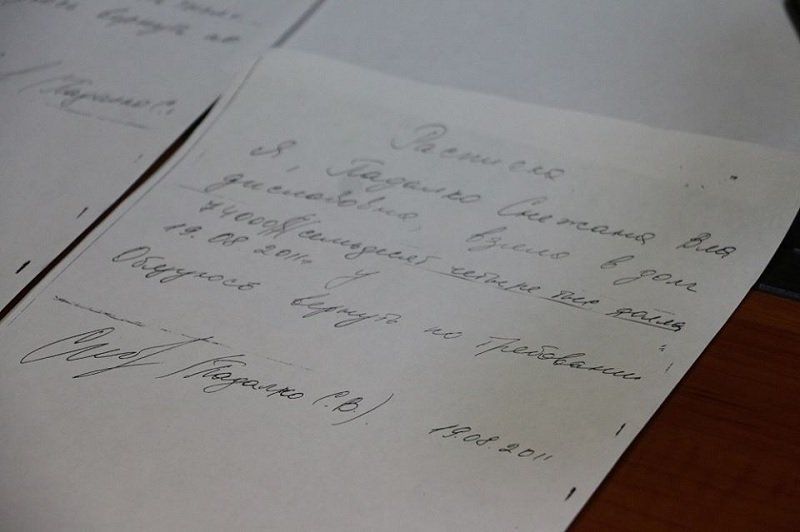 вернуть по
/Падалко С.
Расписка
Я, Падалко Снежана Вла
диславовна, взяла в долг
74000$ (семьдесят четыре тыс долла
19.08.2011 у
Обязуюсь вернуть по требовании
/Падалко С.В.).
19.08.2011